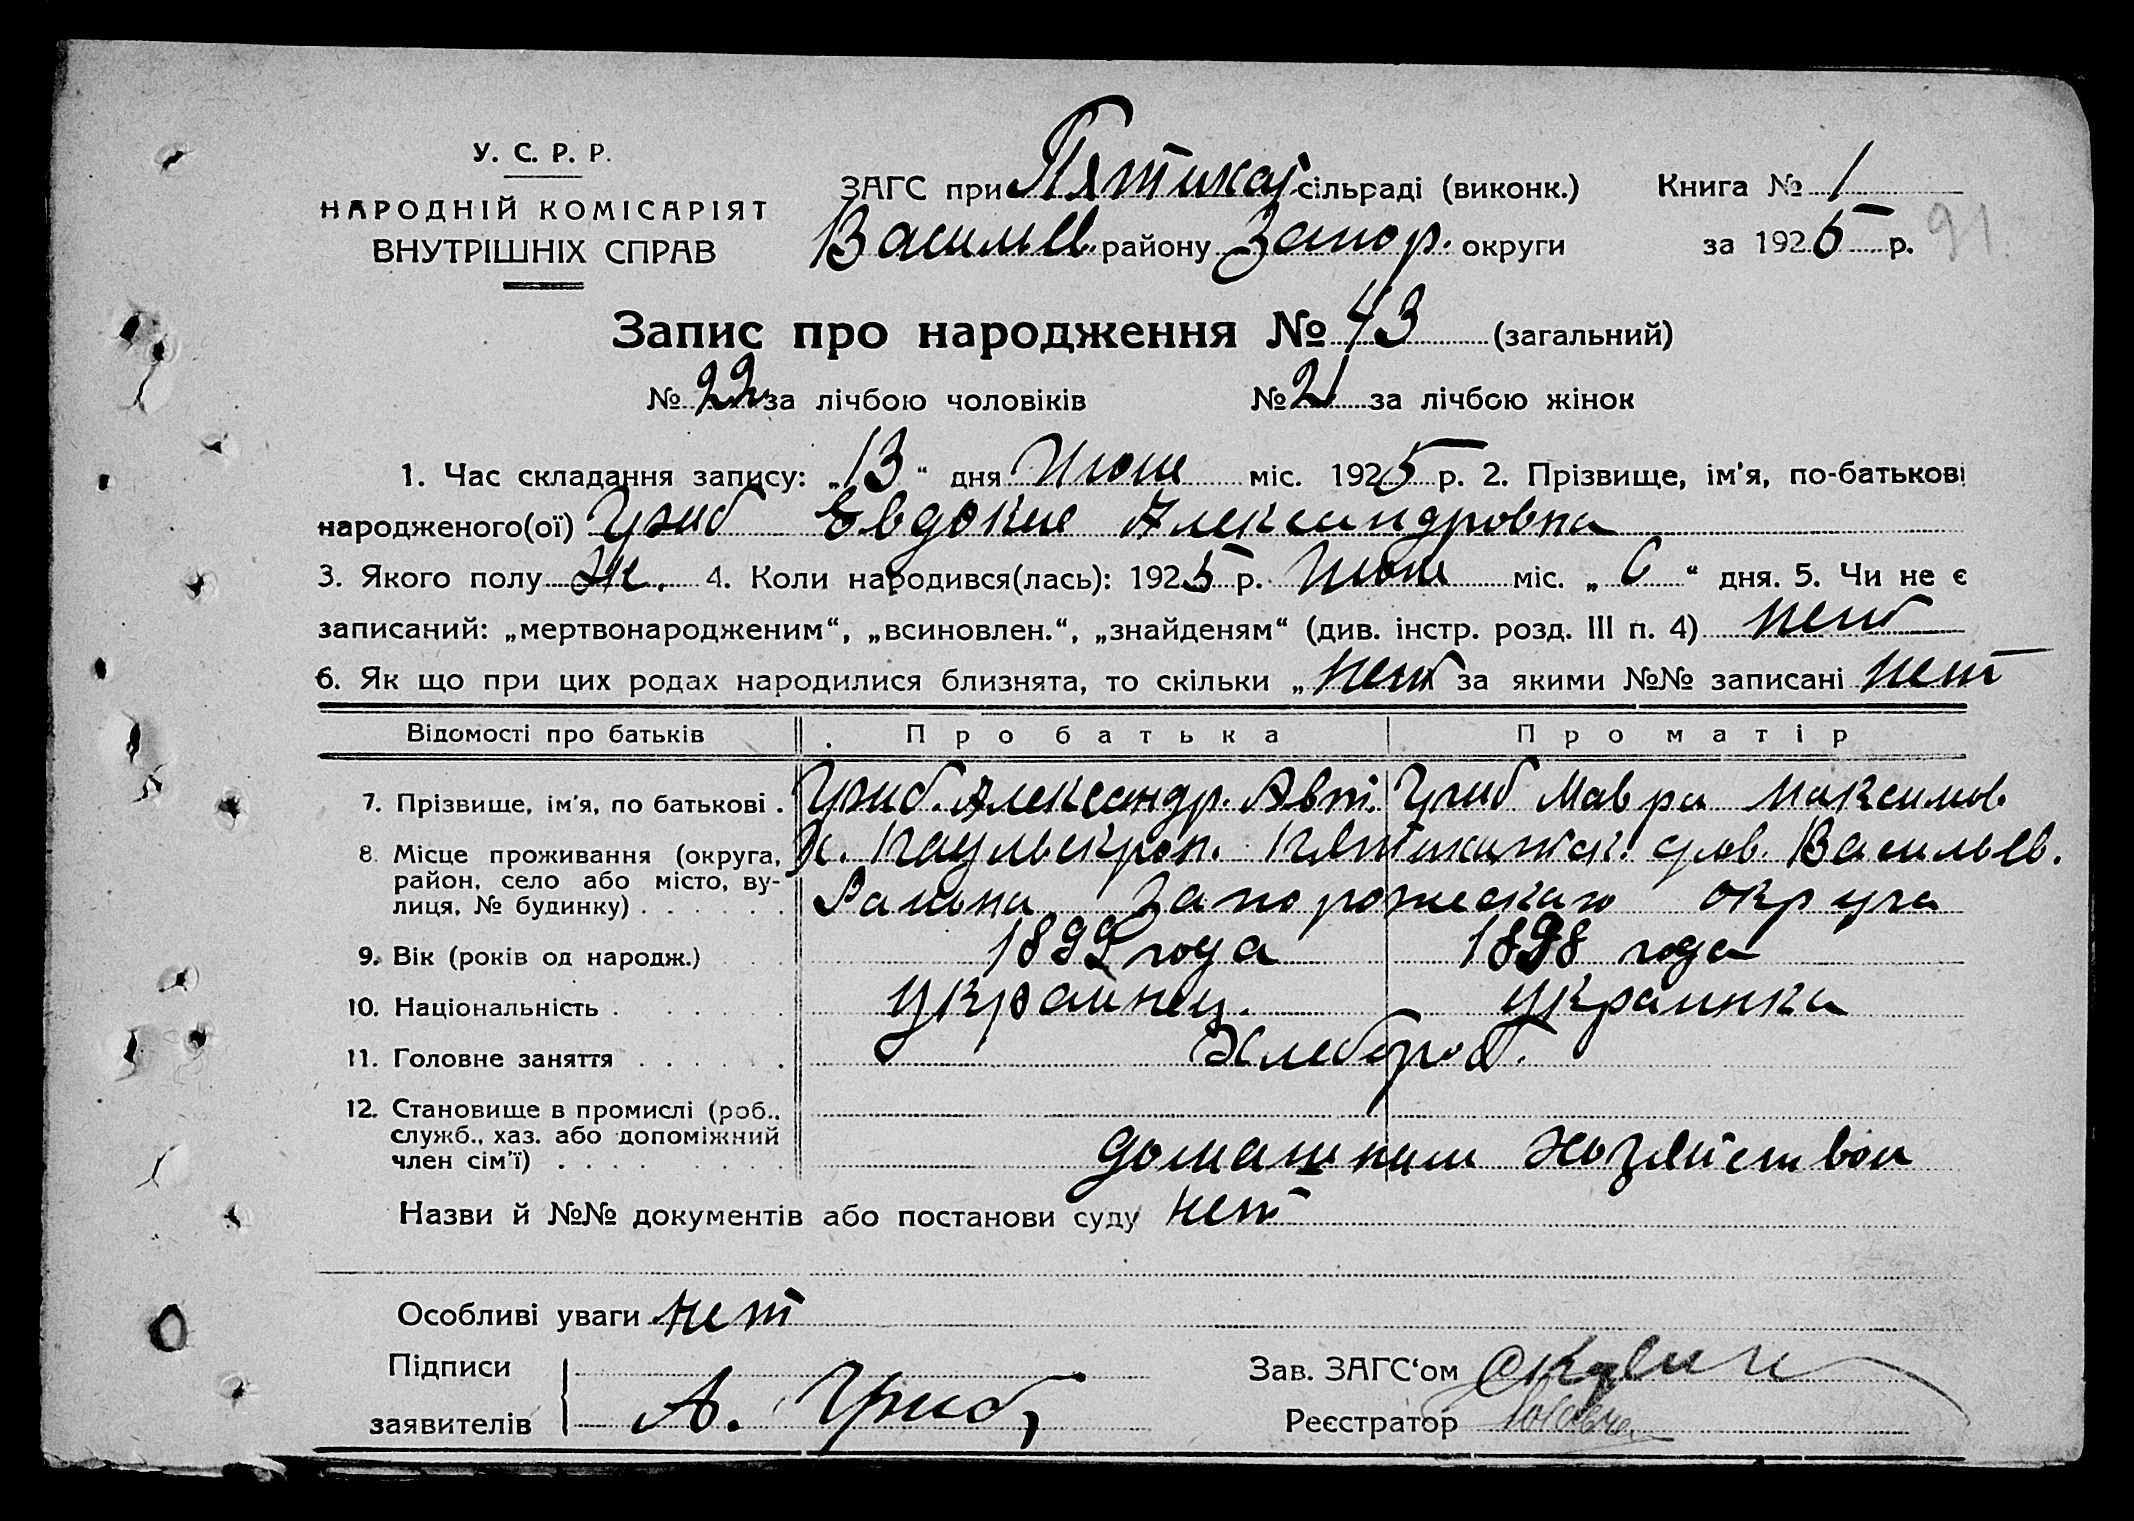 У. С. Р. Р.
НАРОДНІЙ КОМІСАРІЯТ
ВНУТРІШНІХ СПРАВ
ЗАГС при Пятихат сільраді (виконк.) Книга № 1
Васильев. району Запор. округи за 1925 р. 91
Запис про народження № 43 (загальний)
№ 22 за лічбою чоловіків № 21 за лічбою жінок
1. Час складання запису: „13“ дня Июня міс. 1925 р. 2. Прізвище, ім'я, по-батькові
народженого(ої) Гриб Евдокия Александровна
3. Якого полу Ж. 4. Коли народився(лась): 1925 р. Июня міс. „6“ дня. 5. Чи не є
записаний: „мертвонародженим“, „всиновлен.“, „знайденям“ (див. інстр. розд. III п. 4) нет
6. Як що при цих родах народилися близнята, то скільки „ нет за якими №№ записані нет
Відомості про батьків Про батька Про матір
7. Прізвище, ім'я, по батькові . Гриб. Александр. Авт. Гриб Мавра Максимов.
8. Місце проживання (округа, район, село або місто, вулиця, № будинку) . . . . . . Васильев.
Района Запорожскаго округа
9. Вік (років од народж.) 1899 года 1898 года
10. Національність . . . . . . украинец. украинка
11. Головне заняття . . . . . . Хлебороб.
12. Становище в промислі (роб., служб., хаз. або допоміжний член сім'ї) . . . . . . домашним хозяйством
Назви й №№ документів або постанови суду нет
Особливі уваги нет
Підписи
заявителів А. Гриб
Зав. ЗАГС'ом
Реєстратор